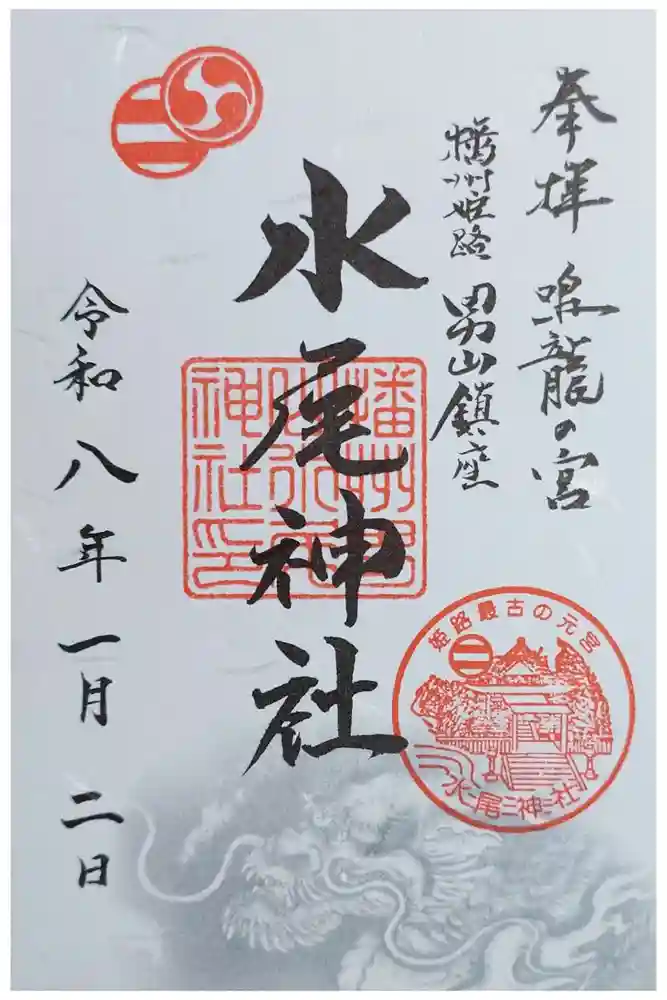 奉拝 鳴龍の宮
播州姫路 男山鎮座
水尾神社
播州男
山水尾
神社印
姫路最古の元宮
水尾神社
令和八年一月二日